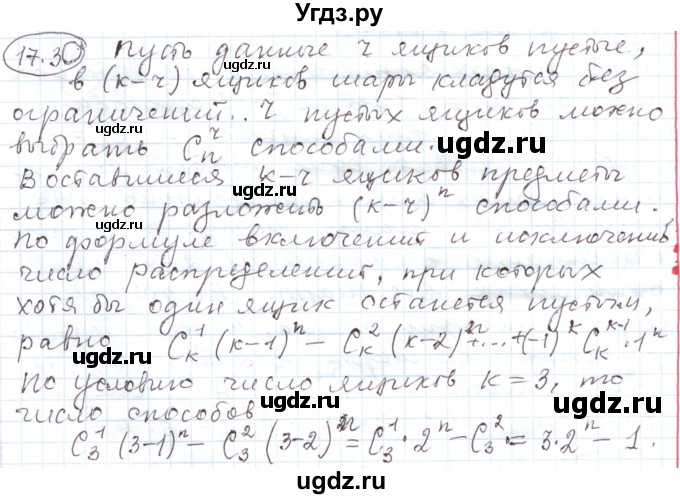 Угдз.ру
17.30 пусть данные r ящиков пустые,
в (k-r) ящиков шары кладутся без
ограничений.. r пустых ящиков можно
выбрать C_n^r способами.
В оставшиеся k-r ящиков предметы
можно разложить (k-r)^n способами.
по формуле включений и исключений,
число распределений, при которых
хотя бы один ящик останется пустым,
равно C_k^1 (k-1)^n - C_k^2 (k-2)^n +...+(-1)^k C_k^{k-1}·1^n
По условию число ящиков k=3, то
число способов
C_3^1 (3-1)^n - C_3^2 (3-2)^n = C_3^1·2^n - C_3^2 = 3·2^n - 1.
ugdz.ru
ugdz.ru
ugdz.ru
ugdz.ru
ugdz.ru
ugdz.ru
ugdz.ru
ugdz.ru
ugdz.ru
ugdz.ru
ugdz.ru
ugdz.ru